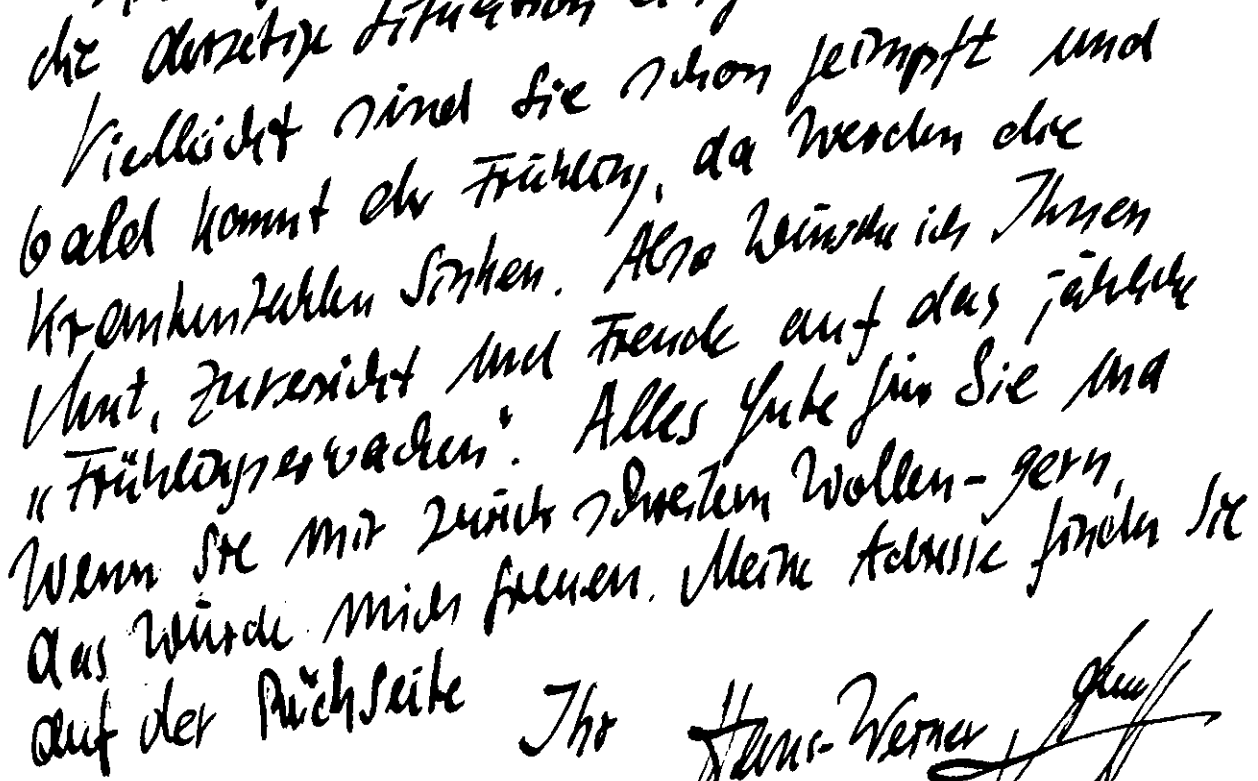 die derzeitige Situation
Vielleicht sind Sie schon geimpft und
bald kommt der Frühling, da werden die
Krankenzahlen sinken. Also wünsche ich Ihnen
Mut, Zuversicht und Freude auf das jährliche
„Frühlingserwachen“. Alles Gute für Sie und
wenn Sie mir zurück schreiben wollen - gern,
das würde mich freuen. Meine Adresse finden Sie
auf der Rückseite
Ihr Hans-Werner